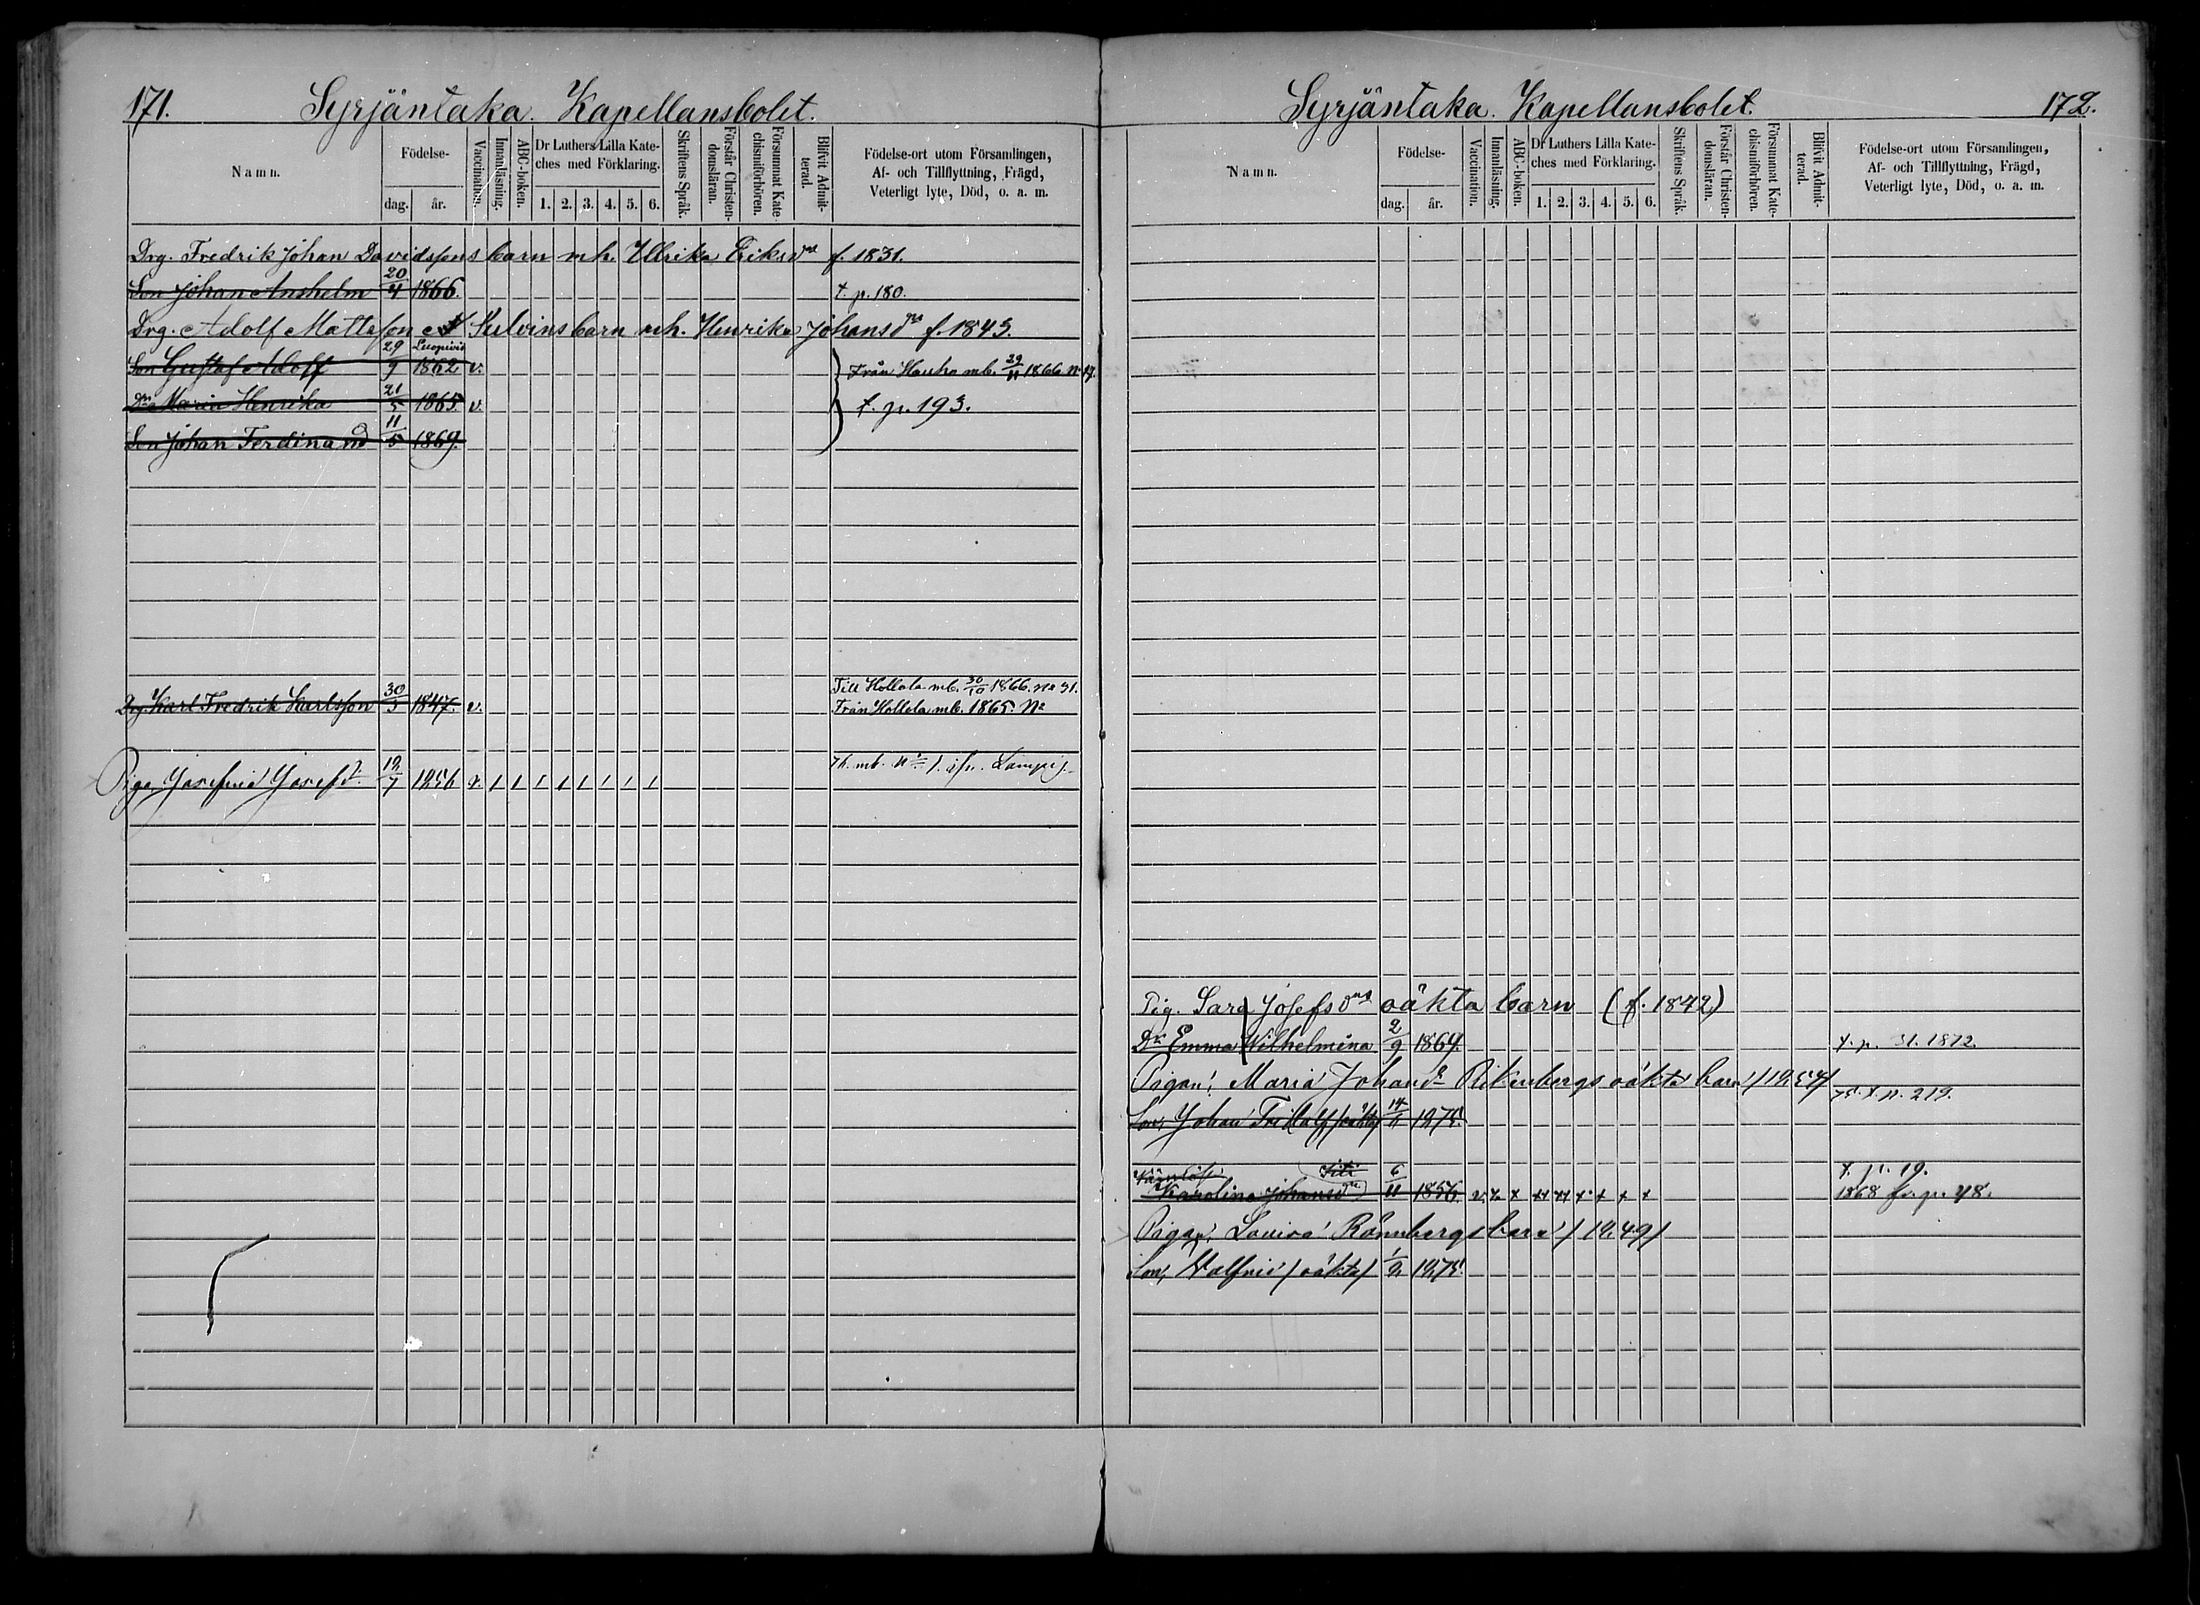 171. Syrjäntaka. Kapellansbolet.
Namn.
Födelse-
dag. år.
Vaccination.
Innanläsning.
ABC-boken.
Dr Luthers Lilla Kate-
ches med Förklaring.
1. 2. 3. 4. 5. 6.
Skriftens Språk.
Förstår Christen-
domsläran.
Försummat Kate-
chismiförhören.
Blifvit Admit-
terad.
Födelse-ort utom Församlingen,
Af- och Tillflyttning, Frägd,
Veterligt lyte, Död, o. a. m.
Drg. Fredrik Johan Davidssons barn mh. Ulrika Eriksdr f. 1831.
Son Johan Anshelm 20/4 1866. t. p. 180.
Drg. Adolf Mattsson barn mh. Henrika Johansdr f. 1843.
Son Gustaf Adolf 29/9 1862 v. Från Hauho mb. 29/11 1866 No
Dr Maria Henrika 21/5 1865. v. t. p. 193.
Son Johan Ferdinand 11/5 1869.
Till Hollola mb. 30/10 1866. No 31.
Drg. Karl Fredrik Karlsson 30/3 1847. v. Från Hollola mb. 1865. No
mb. No 1.
Piga, Josefina Josefd. 12/7 1856 v. / / / / / / / /
Syrjäntaka. Kapellansbolet. 172.
Namn.
Födelse-
dag. år.
Vaccination.
Innanläsning.
ABC-boken.
Dr Luthers Lilla Kate-
ches med Förklaring.
1. 2. 3. 4. 5. 6.
Skriftens Språk.
Förstår Christen-
domsläran.
Försummat Kate-
chismiförhören.
Blifvit Admit-
terad.
Födelse-ort utom Församlingen,
Af- och Tillflyttning, Frägd,
Veterligt lyte, Död, o. a. m.
Pig. Sara Josefsdrs oäkta barn (f. 1842)
Dr Emma Wilhelmina 2/9 1869. t. p. 31. 1872.
Pigan, Maria Johansd. oäkta barn
t. p. 219.
Son, Johan /oäkta/ 1875.
t. p. 19.
Karolina Johansdr 6/11 1856. v. x x xx xx x x x x 1868 fr. p. 48.
Pigan, Lovisa Rönnbergs barn /1849/
Son, Valfrid /oäkta/ 1/2 1875.